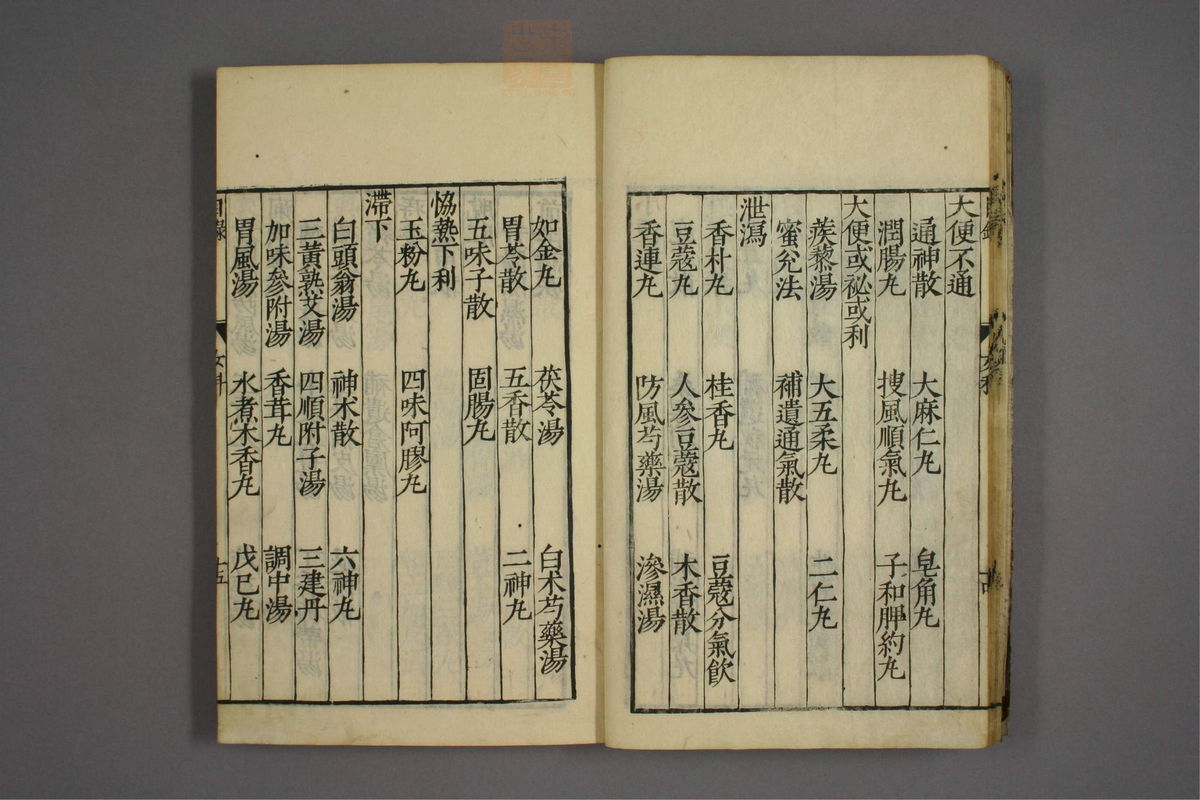 大便不通
通神散 大麻仁丸 皂角丸
潤腸丸 捜風順氣丸 子和脾約丸
大便或祕或利
蒺藜湯 大五柔丸 二仁丸
蜜兊法 補遺通氣散
泄瀉
香朴丸 桂香丸 豆蔻分氣飲
豆蔻丸 人參豆蔻散 木香散
香連丸 防風芍藥湯 滲濕湯
如金丸 茯苓湯 白朮芍藥湯
胃苓散 五香散 二神丸
五味子散 固腸丸
恊熱下利
玉粉丸 四味阿膠丸
滯下
白頭翁湯 神朮散 六神丸
三黃熟艾湯 四順附子湯 三建丹
加味參附湯 香茸丸 調中湯
胃風湯 水煮木香丸 戊巳丸
目錄 女科 十五